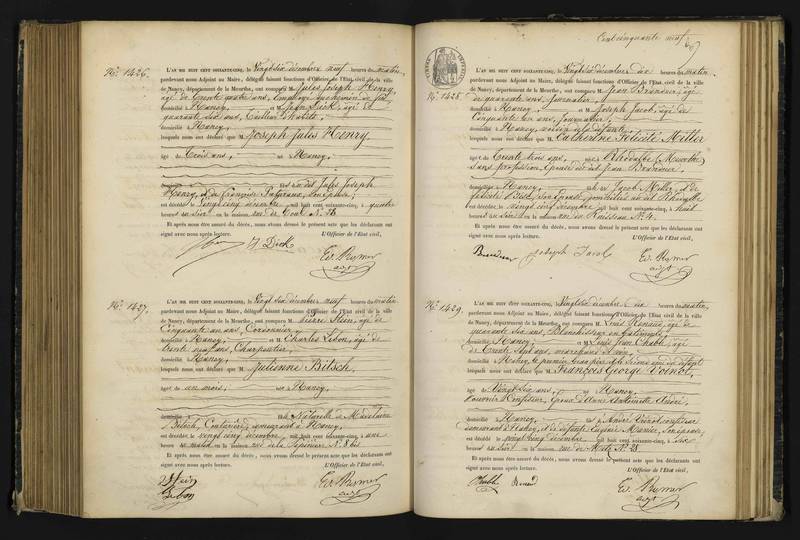 N° 1426.
L'AN MIL HUIT CENT SOIXANTE-CINQ, le Vingt six décembre neuf heures du matin,
pardevant nous Adjoint au Maire, délégué faisant fonctions d'Officier de l'Etat civil de la ville
de Nancy, département de la Meurthe, ont comparu M. Jules Joseph Henry,
âgé de Trente quatre ans, Employé au chemin de fer,
domicilié à Nancy, et M. Jean Dick, âgé de
quarante six ans, Tailleur d'habits,
domicilié à Nancy,
lesquels nous ont déclaré que M. Joseph Jules Henry
âgé de Trois ans, né à Nancy,
fils du dit Jules Joseph
Henry, et de son épouse;
est décédé le Vingt cinq décembre mil huit cent soixante-cinq, à quatre
heures du Soir en la maison rue de Toul N. 26
Et après nous être assuré du décès, nous avons dressé le présent acte que les déclarants ont
signé avec nous après lecture. L'Officier de l'Etat civil,
J. Dick Ed. Rymer
adjt
N° 1427.
L'AN MIL HUIT CENT SOIXANTE-CINQ, le Vingt six décembre neuf heures du matin
pardevant nous Adjoint au Maire, délégué faisant fonctions d'Officier de l'Etat civil de la ville
de Nancy, département de la Meurthe, ont comparu M. Pierre Stein, âgé de
Cinquante un ans, Cordonnier,
domicilié à Nancy, et M. Charles Lebon, âgé de
trente neuf ans, Charpentier,
domicilié à Nancy,
lesquels nous ont déclaré que M. Julienne Bitsch,
âgée de un mois, née à Nancy,
fille Naturelle de Madelaine
Bitsch, Couturière, demeurant à Nancy,
est décédée le vingt cinq décembre, mil huit cent soixante-cinq, à une
heure du matin en la maison rue de la Pépinière N. 8 bis
Et après nous être assuré du décès, nous avons dressé le présent acte que les déclarants ont
signé avec nous après lecture. L'Officier de l'Etat civil,
Stein
Lebon
Ed. Rymer
adjt
Cent cinquante neuf
N° 1428.
L'AN MIL HUIT CENT SOIXANTE-CINQ, le Vingt six décembre dix heures du matin,
pardevant nous Adjoint au Maire, délégué faisant fonctions d'Officier de l'Etat civil de la ville
de Nancy, département de la Meurthe, ont comparu M. Jean Brunner, âgé
de quarante ans, Journalier,
domicilié à Nancy, et M. Joseph Jacob, âgé de
Cinquante un ans, Journalier,
domicilié à Nancy, voisin de la défunte,
lesquels nous ont déclaré que M. Catherine Félicité Miller
âgée de Trente trois ans, née à (Meurthe)
Sans profession, Epouse du dit Jean Brunner,
domiciliée à Nancy, fille de Jacob Miller, et de
Félicité Bise, son épouse, domiciliés au dit
est décédée le vingt cinq décembre mil huit cent soixante-cinq, à huit
heures du Soir en la maison rue du Ruisseau N. 4.
Et après nous être assuré du décès, nous avons dressé le présent acte que les déclarants ont
signé avec nous après lecture. L'Officier de l'Etat civil,
Joseph Jacob Ed. Rymer
adjt
N° 1429.
L'AN MIL HUIT CENT SOIXANTE-CINQ, le Vingt six décembre, dix heures du matin,
pardevant nous Adjoint au Maire, délégué faisant fonctions d'Officier de l'Etat civil de la ville
de Nancy, département de la Meurthe, ont comparu M. Louis Renaud, âgé de
quarante six ans,
domicilié à Nancy, et M. Louis Jean Chablé, âgé
de Trente sept ans,
domicilié à
lesquels nous ont déclaré que M. François George Voinot,
âgé de Vingt six ans, né à Nancy,
Ouvrier Confiseur, Epoux d'Anne Antoinette André,
domicilié à Nancy, fils d'André Voinot confiseur
demeurant à Nancy, et de défunte Eugénie Manier, son épouse,
est décédé le vingt cinq décembre mil huit cent soixante-cinq, à Six
heures du Soir en la maison rue de Metz N. 28
Et après nous être assuré du décès, nous avons dressé le présent acte que les déclarants ont
signé avec nous après lecture. L'Officier de l'Etat civil,
Chablé Renaud Ed. Rymer
adjt